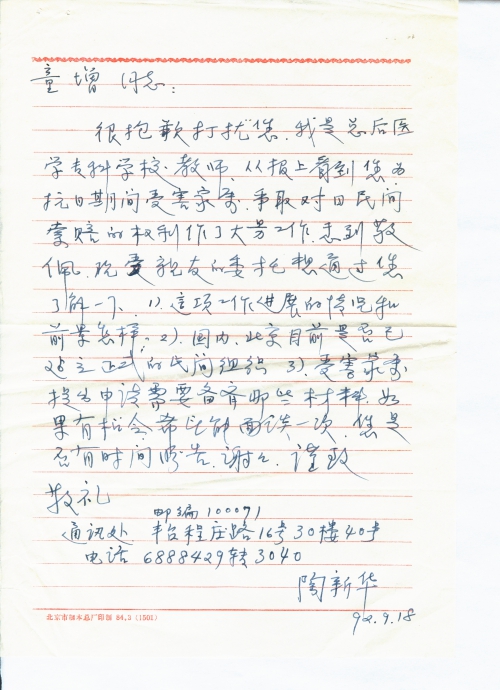 童增同志：
很抱歉打扰您，我是总后医
学专科学校教师，从报上看到您为
抗日期间受害家属，争取对日民间
索赔的权利作了大量工作，感到敬
佩，现受亲友的委托想通过您
了解一下，1).这项工作进展的情况和
前景怎样；2).国内、北京目前是否已
建立正式的民间组织 3).受害家属
提出申请需要备齐哪些材料，如
果有机会希望能面谈一次，您是
否有时间盼告，谢谢，谨致
敬礼
邮编100071
通讯处 丰台程庄路16号30楼40号
电话 6888429转3040
陶新华
92.9.18
北京市印本总厂印制 84.3 (1501)